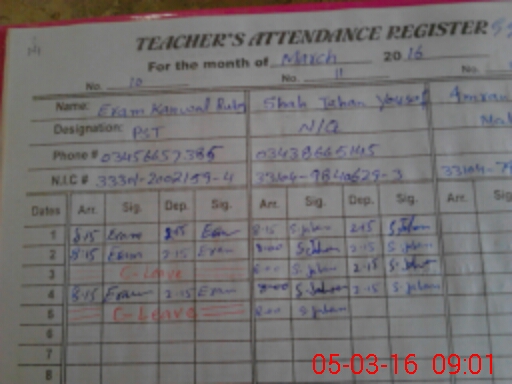 TEACHER'S ATTENDANCE REGISTER
For the month of March 2016
No. 10 No. 11 No.
Name: Eram Kanwal Shah Jahan Yousaf Imran
Designation: PST N/Q
Phone # 03456657385
N.I.C # 33301-2002159-4 33104-9840629-3 33104-
Dates Arr. Sig. Dep. Sig. Arr. Sig. Dep. Sig. Arr.
1 8.15 Eram 2.15 Eram 8.15 S.jahan 2.15 S.Jahan
2 8.15 Eram 2.15 Eram 8.00 S.jahan 2.15 S.jahan
3 C-Leave 8.00 S.jahan 2.15 S.jahan
4 8.15 Eram 2.15 Eram 8.00 S.jahan 2.15 S.jahan
5 C-Leave 8.00 S.jahan
6
7
8
05-03-16 09:01